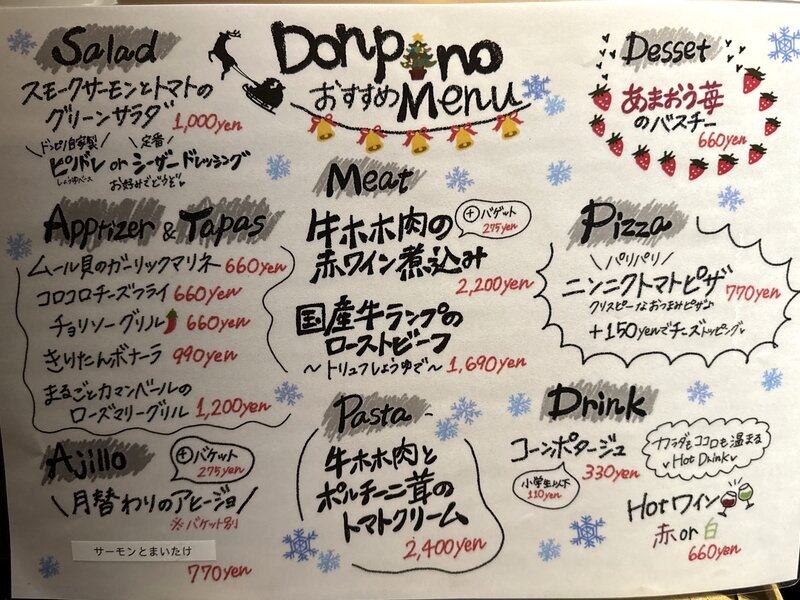 Donpino
おすすめMenu
Salad
スモークサーモンとトマトの
グリーンサラダ 1,000yen
ドンピノ自家製 定番
ピノドレ or シーザードレッシング
しょうゆベース お好みでどうぞ
Apptizer & Tapas
ムール貝のガーリックマリネ 660yen
コロコロチーズフライ 660yen
チョリソーグリル 660yen
きりたんボナーラ 990yen
まるごとカマンベールの
ローズマリーグリル 1,200yen
Ajillo
+バゲット
275yen
月替わりのアヒージョ
※バゲット別
サーモンとまいたけ
770yen
Meat
牛ホホ肉の
赤ワイン煮込み
+バゲット
275yen
2,200yen
国産牛ランプの
ローストビーフ
〜トリュフしょうゆで〜 1,690yen
Pasta
牛ホホ肉と
ポルチーニ茸の
トマトクリーム
2,400yen
Desset
あまおう苺
のバスチー
660yen
Pizza
\パリパリ/
ニンニクトマトピザ 770yen
クリスピーなおつまみピザ♪
+150yenでチーズトッピング
Drink
コーンポタージュ 330yen
小学生以下
110yen
カラダもココロも温まる
Hot Drink
Hotワイン
赤or白
660yen